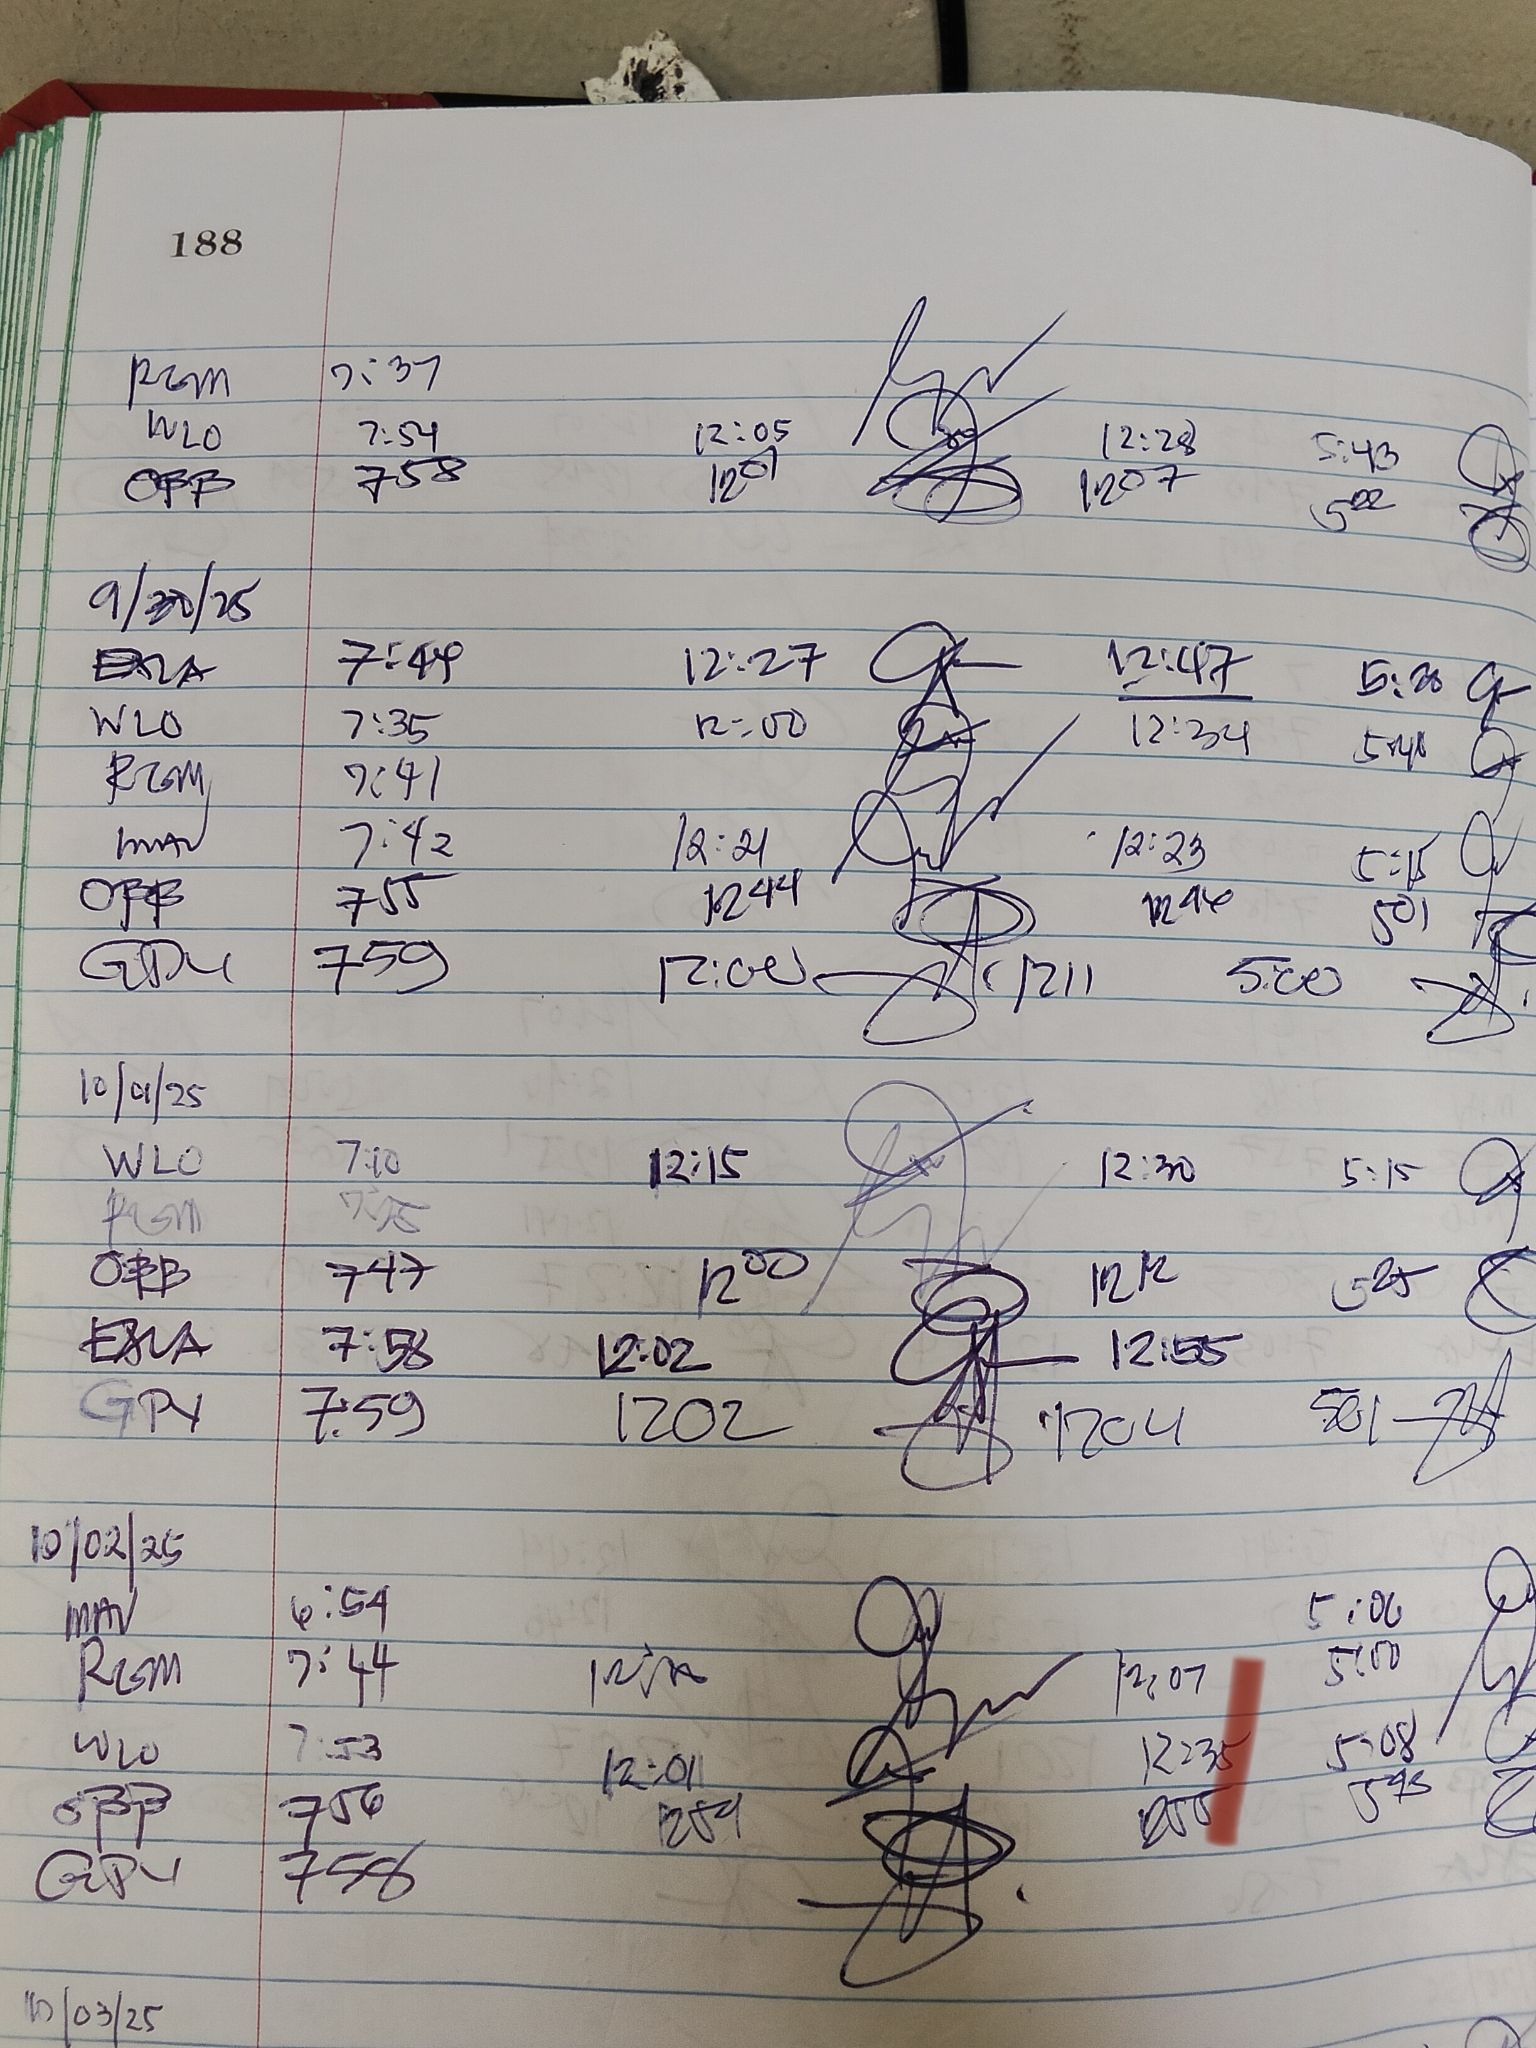 188
RGM 7:37
WLO 7:54 12:05 12:28 5:43
OBB 758 1201 1207 522
9/30/25
7:49 12:27 12:47 5:20
WLO 7:35 12:00 12:34 5:41
RGM 7:41
MAV 7:42 12:21 12:23 5:15
OBB 755 1244 1246 501
GPY 759 12:00 1211 5:00
10/01/25
WLO 7:10 12:15 12:30 5:15
RGM
OBB 747 1200 1212 525
7:58 12:02 12:55
GPY 7:59 1202 1204 501
10/02/25
MAV 6:54 5:06
RGM 7:44 12:07 5:00
WLO 7:53 12:01 12:35 5:08
OBB 756 1254 1255 543
GPY 758
10/03/25